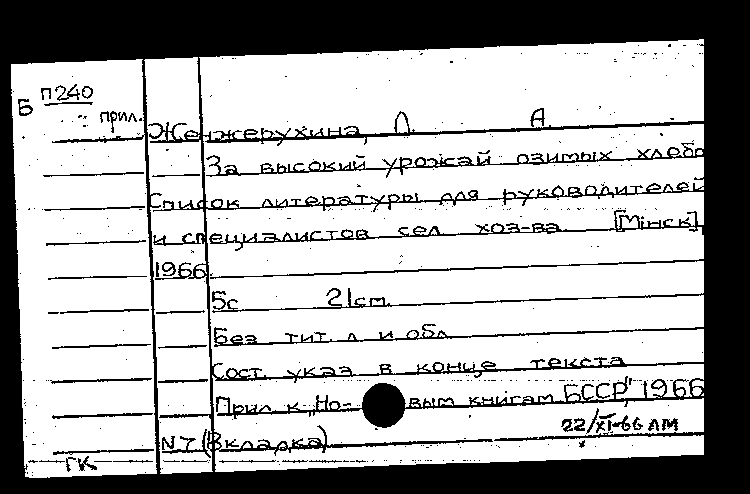 Б П240
прил.
Женжерухина, Л. А.
За высокий урожай озимых хлебо
Список литературы для руководителей
и специалистов сел. хоз-ва. [Мінск],
1966.
5с 21см.
Без тит. л. и обл.
Сост. указ. в конце текста
Прил. к „Но- вым книгам БССР", 1966
N 7 (Вкладка)
22/XI-66 ЛМ
ГК